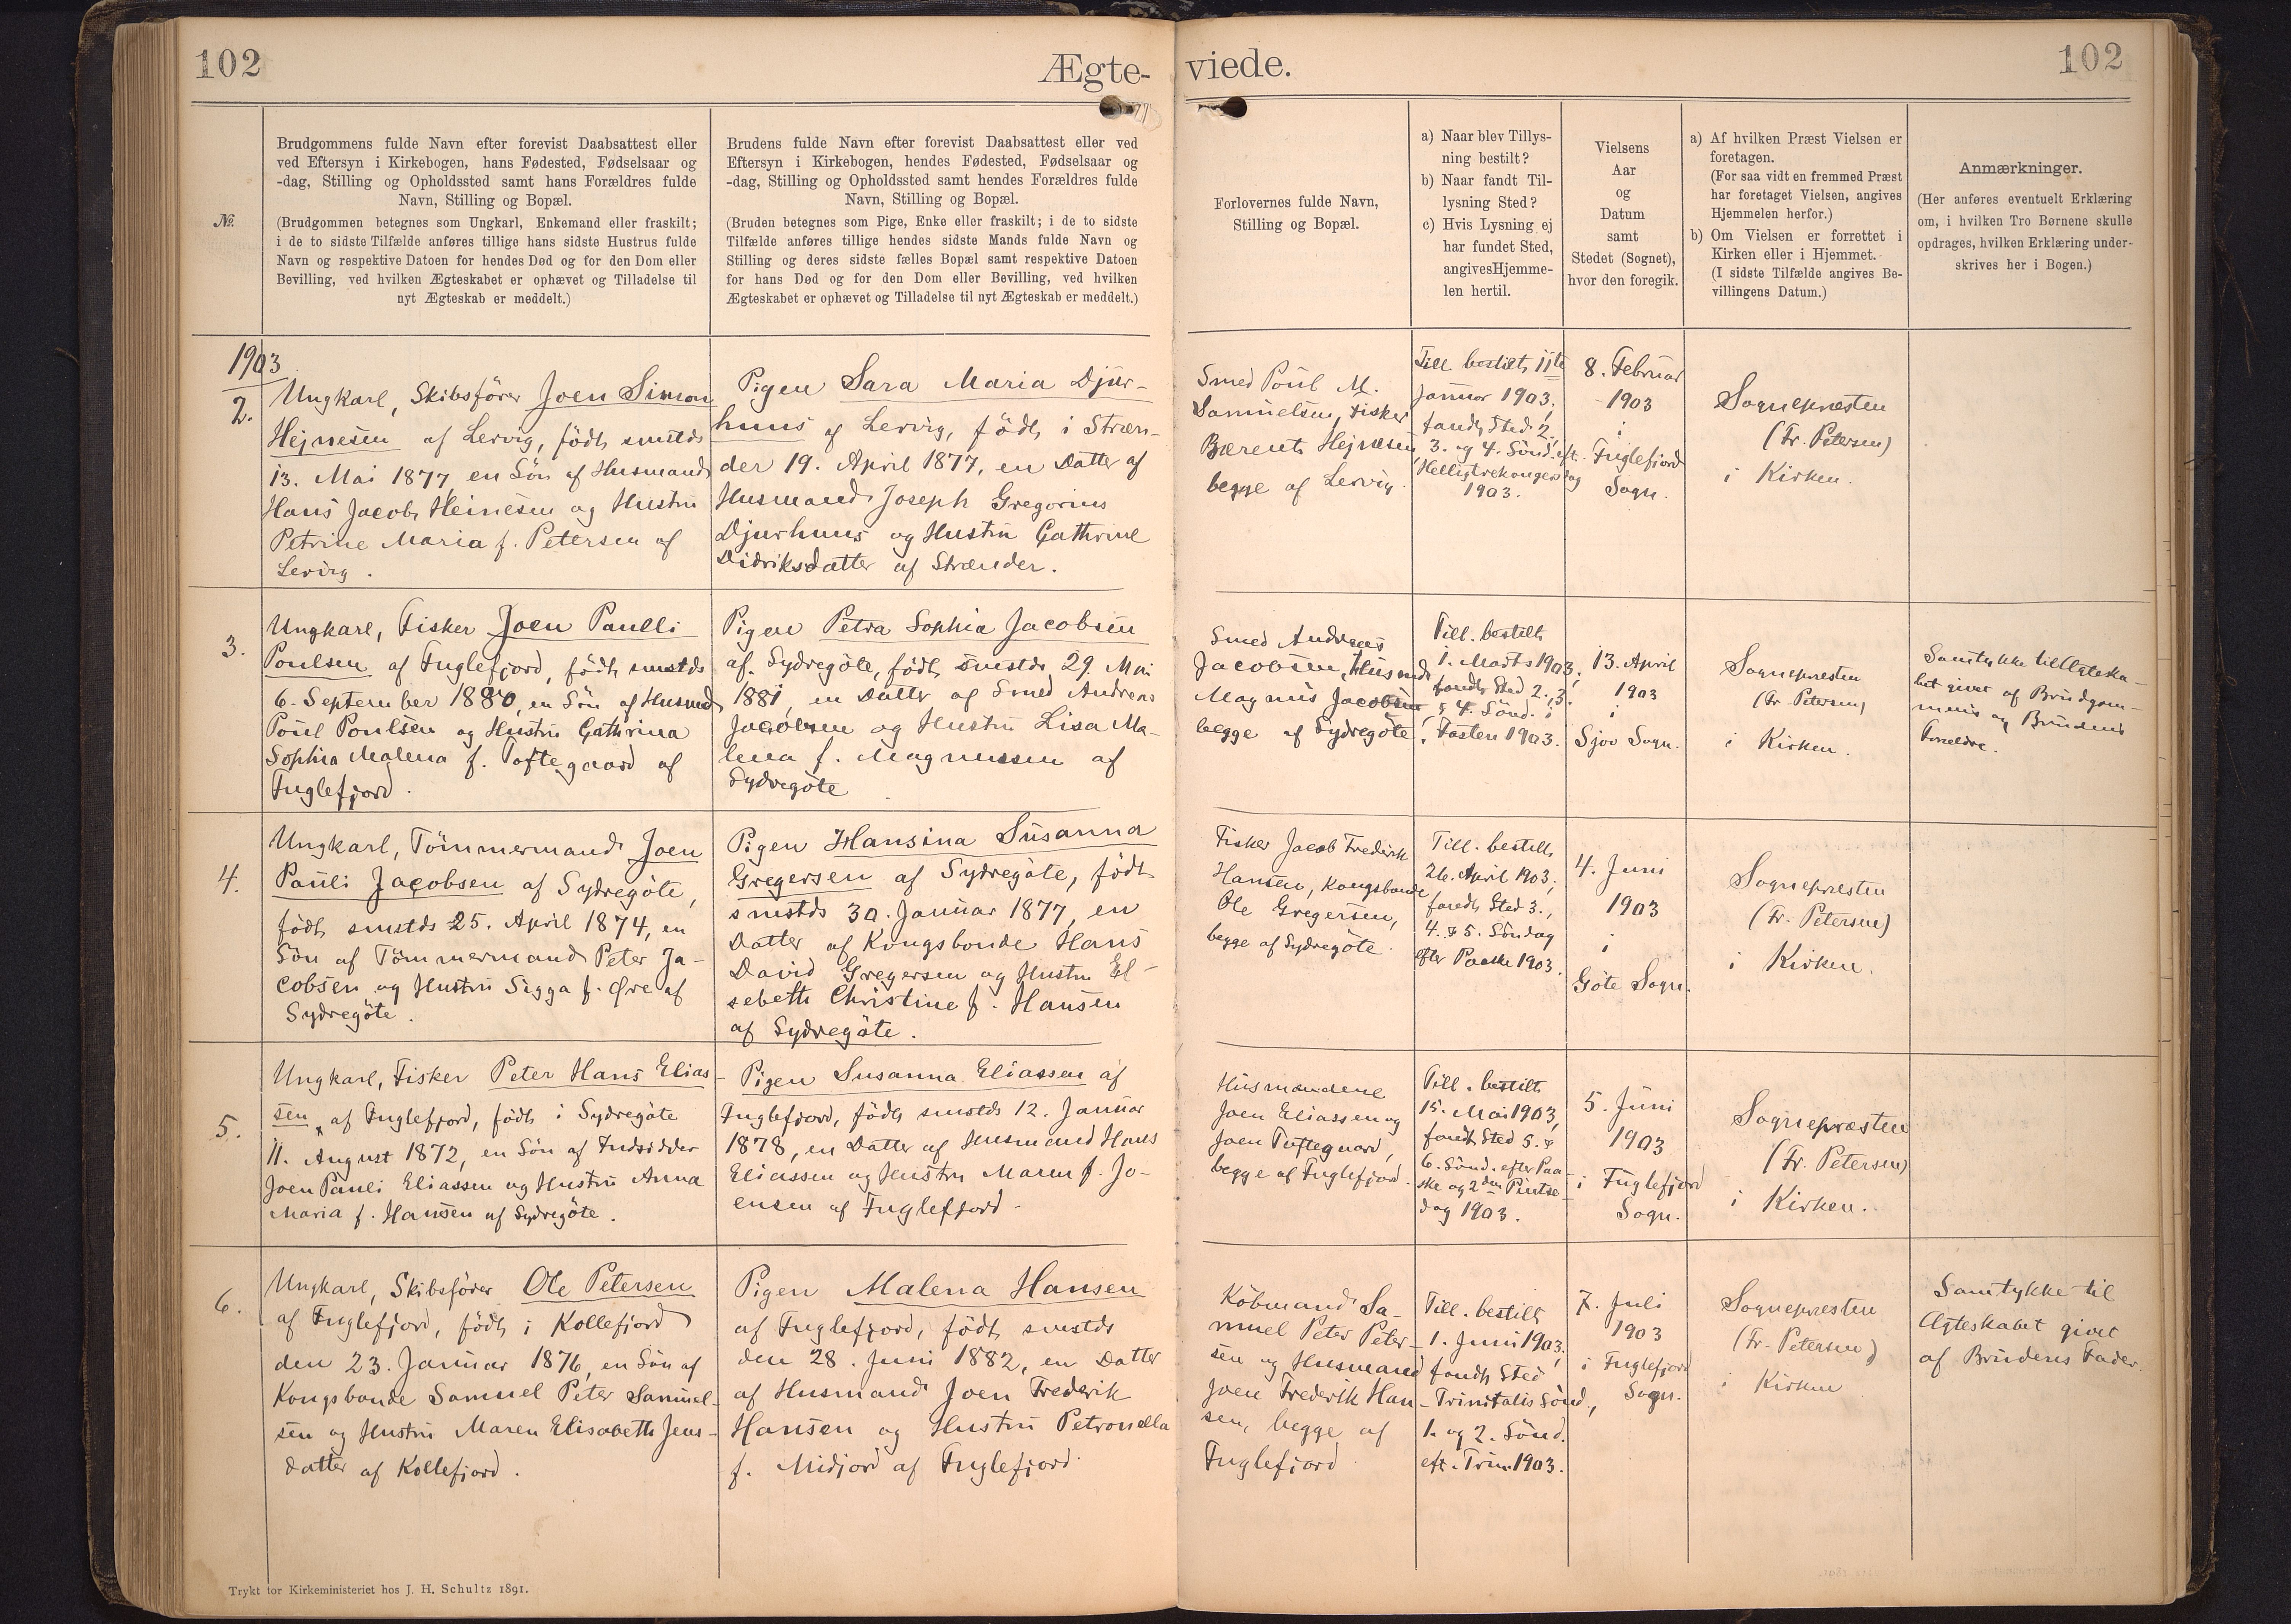 102
Ægte-
viede.
102
№.
Brudgommens fulde Navn efter forevist Daabsattest eller
ved Eftersyn i Kirkebogen, hans Fødested, Fødselsaar og
-dag, Stilling og Opholdssted samt hans Forældres fulde
Navn, Stilling og Bopæl.
(Brudgommen betegnes som Ungkarl, Enkemand eller fraskilt;
i de to sidste Tilfælde anføres tillige hans sidste Hustrus fulde
Navn og respektive Datoen for hendes Død og for den Dom eller
Bevilling, ved hvilken Ægteskabet er ophævet og Tilladelse til
nyt Ægteskab er meddelt.)
Brudens fulde Navn efter forevist Daabsattest eller ved
Eftersyn i Kirkebogen, hendes Fødested, Fødselsaar og
-dag, Stilling og Opholdssted samt hendes Forældres fulde
Navn, Stilling og Bopæl.
(Bruden betegnes som Pige, Enke eller fraskilt; i de to sidste
Tilfælde anføres tillige hendes sidste Mands fulde Navn og
Stilling og deres sidste fælles Bopæl samt respektive Datoen
for hans Død og for den Dom eller Bevilling, ved hvilken
Ægteskabet er ophævet og Tilladelse til nyt Ægteskab er meddelt.)
Forlovernes fulde Navn,
Stilling og Bopæl.
a) Naar blev Tillys-
ning bestilt?
b) Naar fandt Til-
lysning Sted?
c) Hvis Lysning ej
har fundet Sted,
angives Hjemme-
len hertil.
Vielsens
Aar
og
Datum
samt
Stedet (Sognet),
hvor den foregik.
a) Af hvilken Præst Vielsen er
foretagen.
(For saa vidt en fremmed Præst
har foretaget Vielsen, angives
Hjemmelen herfor.)
b) Om Vielsen er forrettet i
Kirken eller i Hjemmet.
(I sidste Tilfælde angives Be-
villingens Datum.)
Anmærkninger.
(Her anføres eventuelt Erklæring
om, i hvilken Tro Børnene skulle
opdrages, hvilken Erklæring under-
skrives her i Bogen.)
1903
2.
Ungkarl, Skibsfører Joen Simon
Hejnesen af Lervig, født smstds
13. Mai 1877, en Søn af Husmand
Hans Jacob Heinesen og Hustru
Petrine Maria f. Petersen af
Lervig.
Pigen Sara Maria Djur-
huus af Lervig, født i Stræn-
der 19. April 1877, en Datter af
Husmand Joseph Gregorius
Djurhuus og Hustru Cathrine
Didriksdatter af Strænder.
Smed Poul M.
Samuelsen, Fisker
Bærent Hejnesen
begge af Lervig.
Till. bestilt 11te
Januar 1903;
fandt Sted 2.,
3. og 4. Sønd. eft.
Helligtrekongersdag
1903.
8. Februar
1903
i
Fuglefjord
Sogn.
Sognepræsten
(Fr. Petersen)
i Kirken.
3.
Ungkarl, Fisker Joen Paulli
Poulsen af Fuglefjord, født smstds
6. September 1880, en Søn af Husmd
Poul Poulsen og Hustru Cathrina
Sophia Malena f. Toftegaard af
Fuglefjord.
Pigen Petra Sophia Jacobsen
af Sydregöte, født smstds 29. Mai
1881, en Datter af Smed Andreas
Jacobsen og Hustru Lisa Ma-
lena f. Magnussen af
Sydregöte
Smed Andreas
Jacobsen, Husmd
Magnus Jacobsen,
begge af Sydregöte.
Till. bestilt
1. Marts 1903;
fandt Sted 2., 3.
& 4. Sønd. i
Fasten 1903.
13. April
1903
i
Sjov Sogn.
Sognepræsten
(Fr. Petersen)
i Kirken.
Samtykke til Ægteska-
bet givet af Brudgom-
mens og Brudens
Forældre.
4.
Ungkarl, Tömmermand Joen
Pauli Jacobsen af Sydregöte,
født smstds 25. April 1874, en
Søn af Tömmermand Peter Ja-
cobsen og Hustru Sigga f. Øre af
Sydregöte.
Pigen Hansina Susanna
Gregersen af Sydregöte, født
smstds 30. Januar 1877, en
Datter af Kongsbonde Hans
David Gregersen og Hustru El-
sebeth Christine f. Hansen
af Sydregöte.
Fisker Jacob Frederik
Hansen, Kongsbonde
Ole Gregersen,
begge af Sydregöte.
Till. bestilt
26. April 1903;
fandt Sted 3.,
4. & 5. Søndag
efter Paaske 1903.
4. Juni
1903
i
Göte Sogn.
Sognepræsten
(Fr. Petersen)
i Kirken.
5.
Ungkarl, Fisker Peter Hans Elias-
sen, af Fuglefjord, født i Sydregöte
11. August 1872, en Søn af Indsidder
Joen Pauli Eliassen og Hustru Anna
Maria f. Hansen af Sydregöte.
Pigen Susanna Eliassen af
Fuglefjord, født smstds 12. Januar
1878, en Datter af Husmand Hans
Eliassen og Hustru Maren f. Jo-
ensen af Fuglefjord.
Husmændene
Joen Eliassen og
Joen Toftegaard,
begge af Fuglefjord.
Till. bestilt
15. Mai 1903,
fandt Sted 5. &
6. Sønd. efter Paa-
ske og 2den Pintse-
dag 1903.
5. Juni
1903
i Fuglefjord
Sogn.
Sognepræsten
(Fr. Petersen)
i Kirken.
6.
Ungkarl, Skibsfører Ole Petersen
af Fuglefjord, født i Kollefjord
den 23. Januar 1876, en Søn af
Kongsbonde Samuel Peter Samuel-
sen og Hustru Maren Elisabeth Jens-
datter af Kollefjord.
Pigen Malena Hansen
af Fuglefjord, født smstds
den 28. Juni 1882, en Datter
af Husmand Joen Frederik
Hansen og Hustru Petronella
f. Midjord af Fuglefjord.
Köbmand Sa-
muel Peter Peter-
sen og Husmand
Joen Frederik Han-
sen, begge af
Fuglefjord.
Till. bestilt
1. Juni 1903,
fandt Sted
Trinitatis Sönd.,
1. og 2. Sönd.
eft. Trin. 1903.
7. Juli
1903
i Fuglefjord
Sogn.
Sognepræsten
(Fr. Petersen)
i Kirken
Samtykke til
Ægteskabet givet
af Brudens Fader.
Trykt for Kirkeministeriet hos J. H. Schultz 1891.